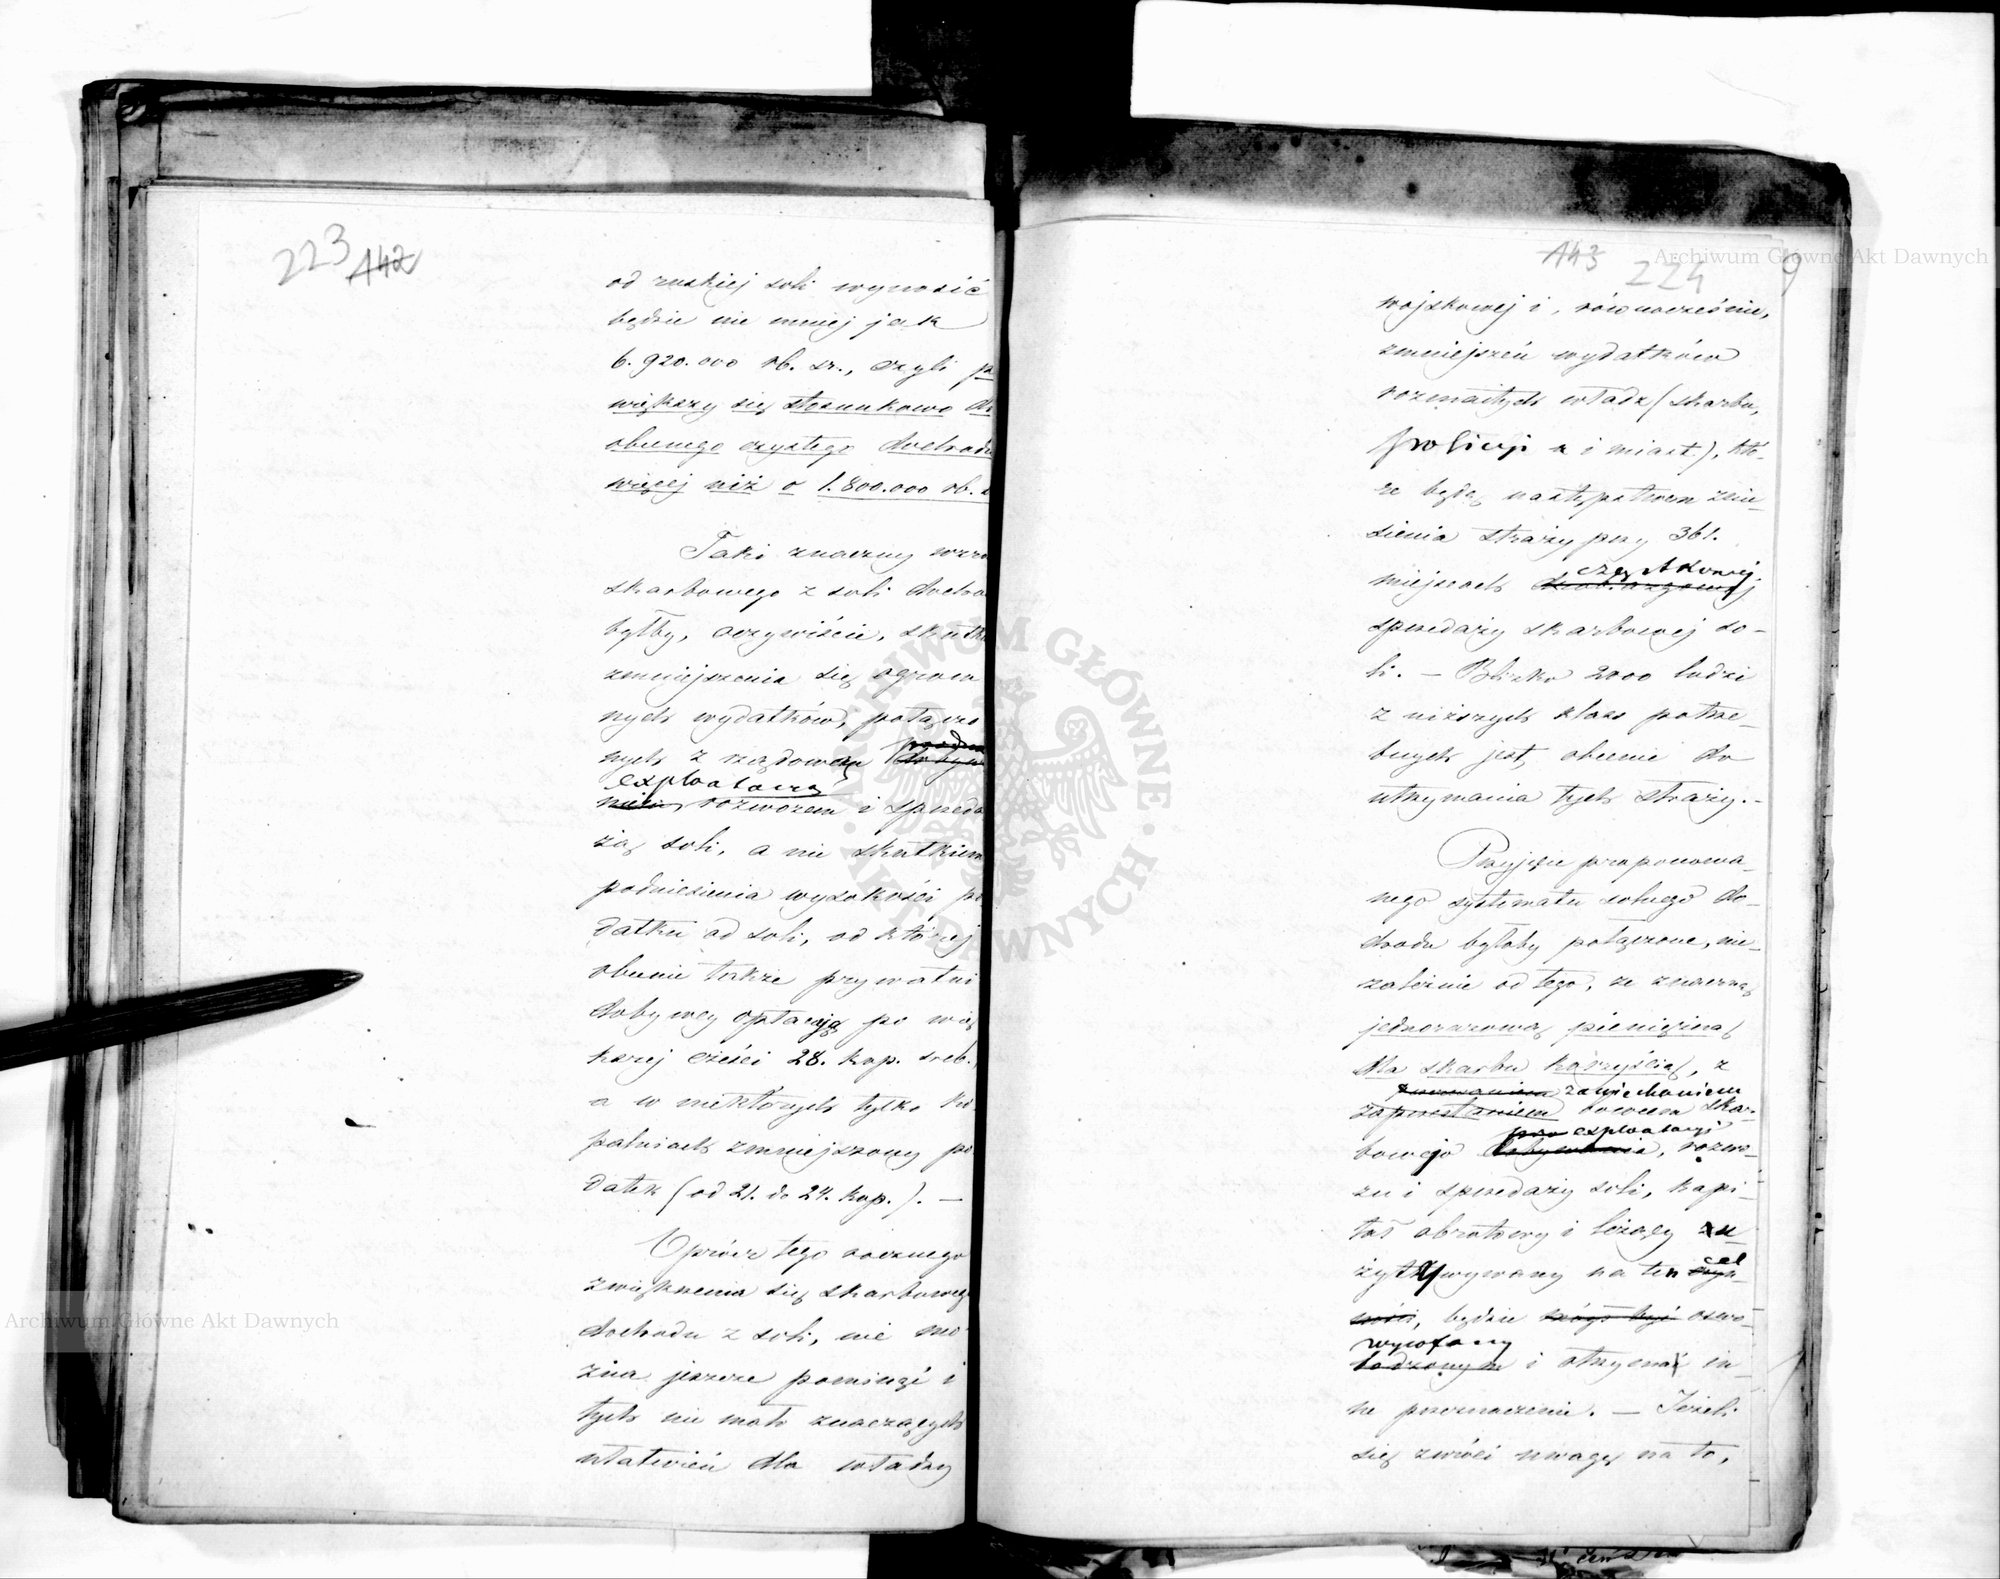 223 142
od ruskiej soli wynosić
będzie nie mniej jak
6.920.000 rb. sr., czyli po
większy się stosunkowo do
obecnego czystego dochodu
więcej niż o 1.800.000 rb. s
Taki znaczny wzro
skarbowego z soli docho
byłby, oczywiście, skutki
zmniejszenia się ogrom
nych wydatków, połączo
nych z rządową
exploatacyą
rozwozem i sprzeda
żą soli, a nie skutkiem
podniesienia wysokości po
datku od soli, od której
obecnie także prywatni
dobywcy opłacają po wię
kszej części 28. kop. sreb.,
a w niektórych tylko ko
palniach zmniejszony po
datek (od 21. do 24. kop.). —
Oprócz tego rocznego
zwiększenia się skarbowego
dochodu z soli, nie mo
żna jeszcze pominąć i
tych nie mało znaczących
ułatwień dla władzy
143 224 9
wojskowej i, równocześnie,
zmniejszeń wydatków
rozmaitych władz (skarbu,
policyi i miast), któ-
re będą następstwem znie-
sienia straży przy 361.
cząstkowej
miejscach
sprzedaży skarbowej so-
li. — Blizko 2000 ludzi
z niższych klass potrze-
bnych jest, obecnie do
utrzymania tych straży. -
Przyjęcie proponowa-
nego systematu solnego do-
chodu byłoby połączone, nie-
zależnie od tego, ze znaczną
jednorazową pieniężną
dla skarbu korzyścią, z
zaniechaniem
zaprzestaniem bowiem skar-
exploatacyi
bowego dobywania, rozwo-
zu i sprzedaży soli, kapi-
tał obrotowy i leżący zu
cel
żytkowywany na ten
ności, będzie mógł być oswo-
wycofany
bodzonym i otrzymać in-
ne przeznaczenie. — Jeżeli
się zwróci uwagę na to,
Archiwum Główne Akt Dawnych
Archiwum Główne Akt Dawnych
ARCHIWUM GŁÓWNE AKT DAWNYCH